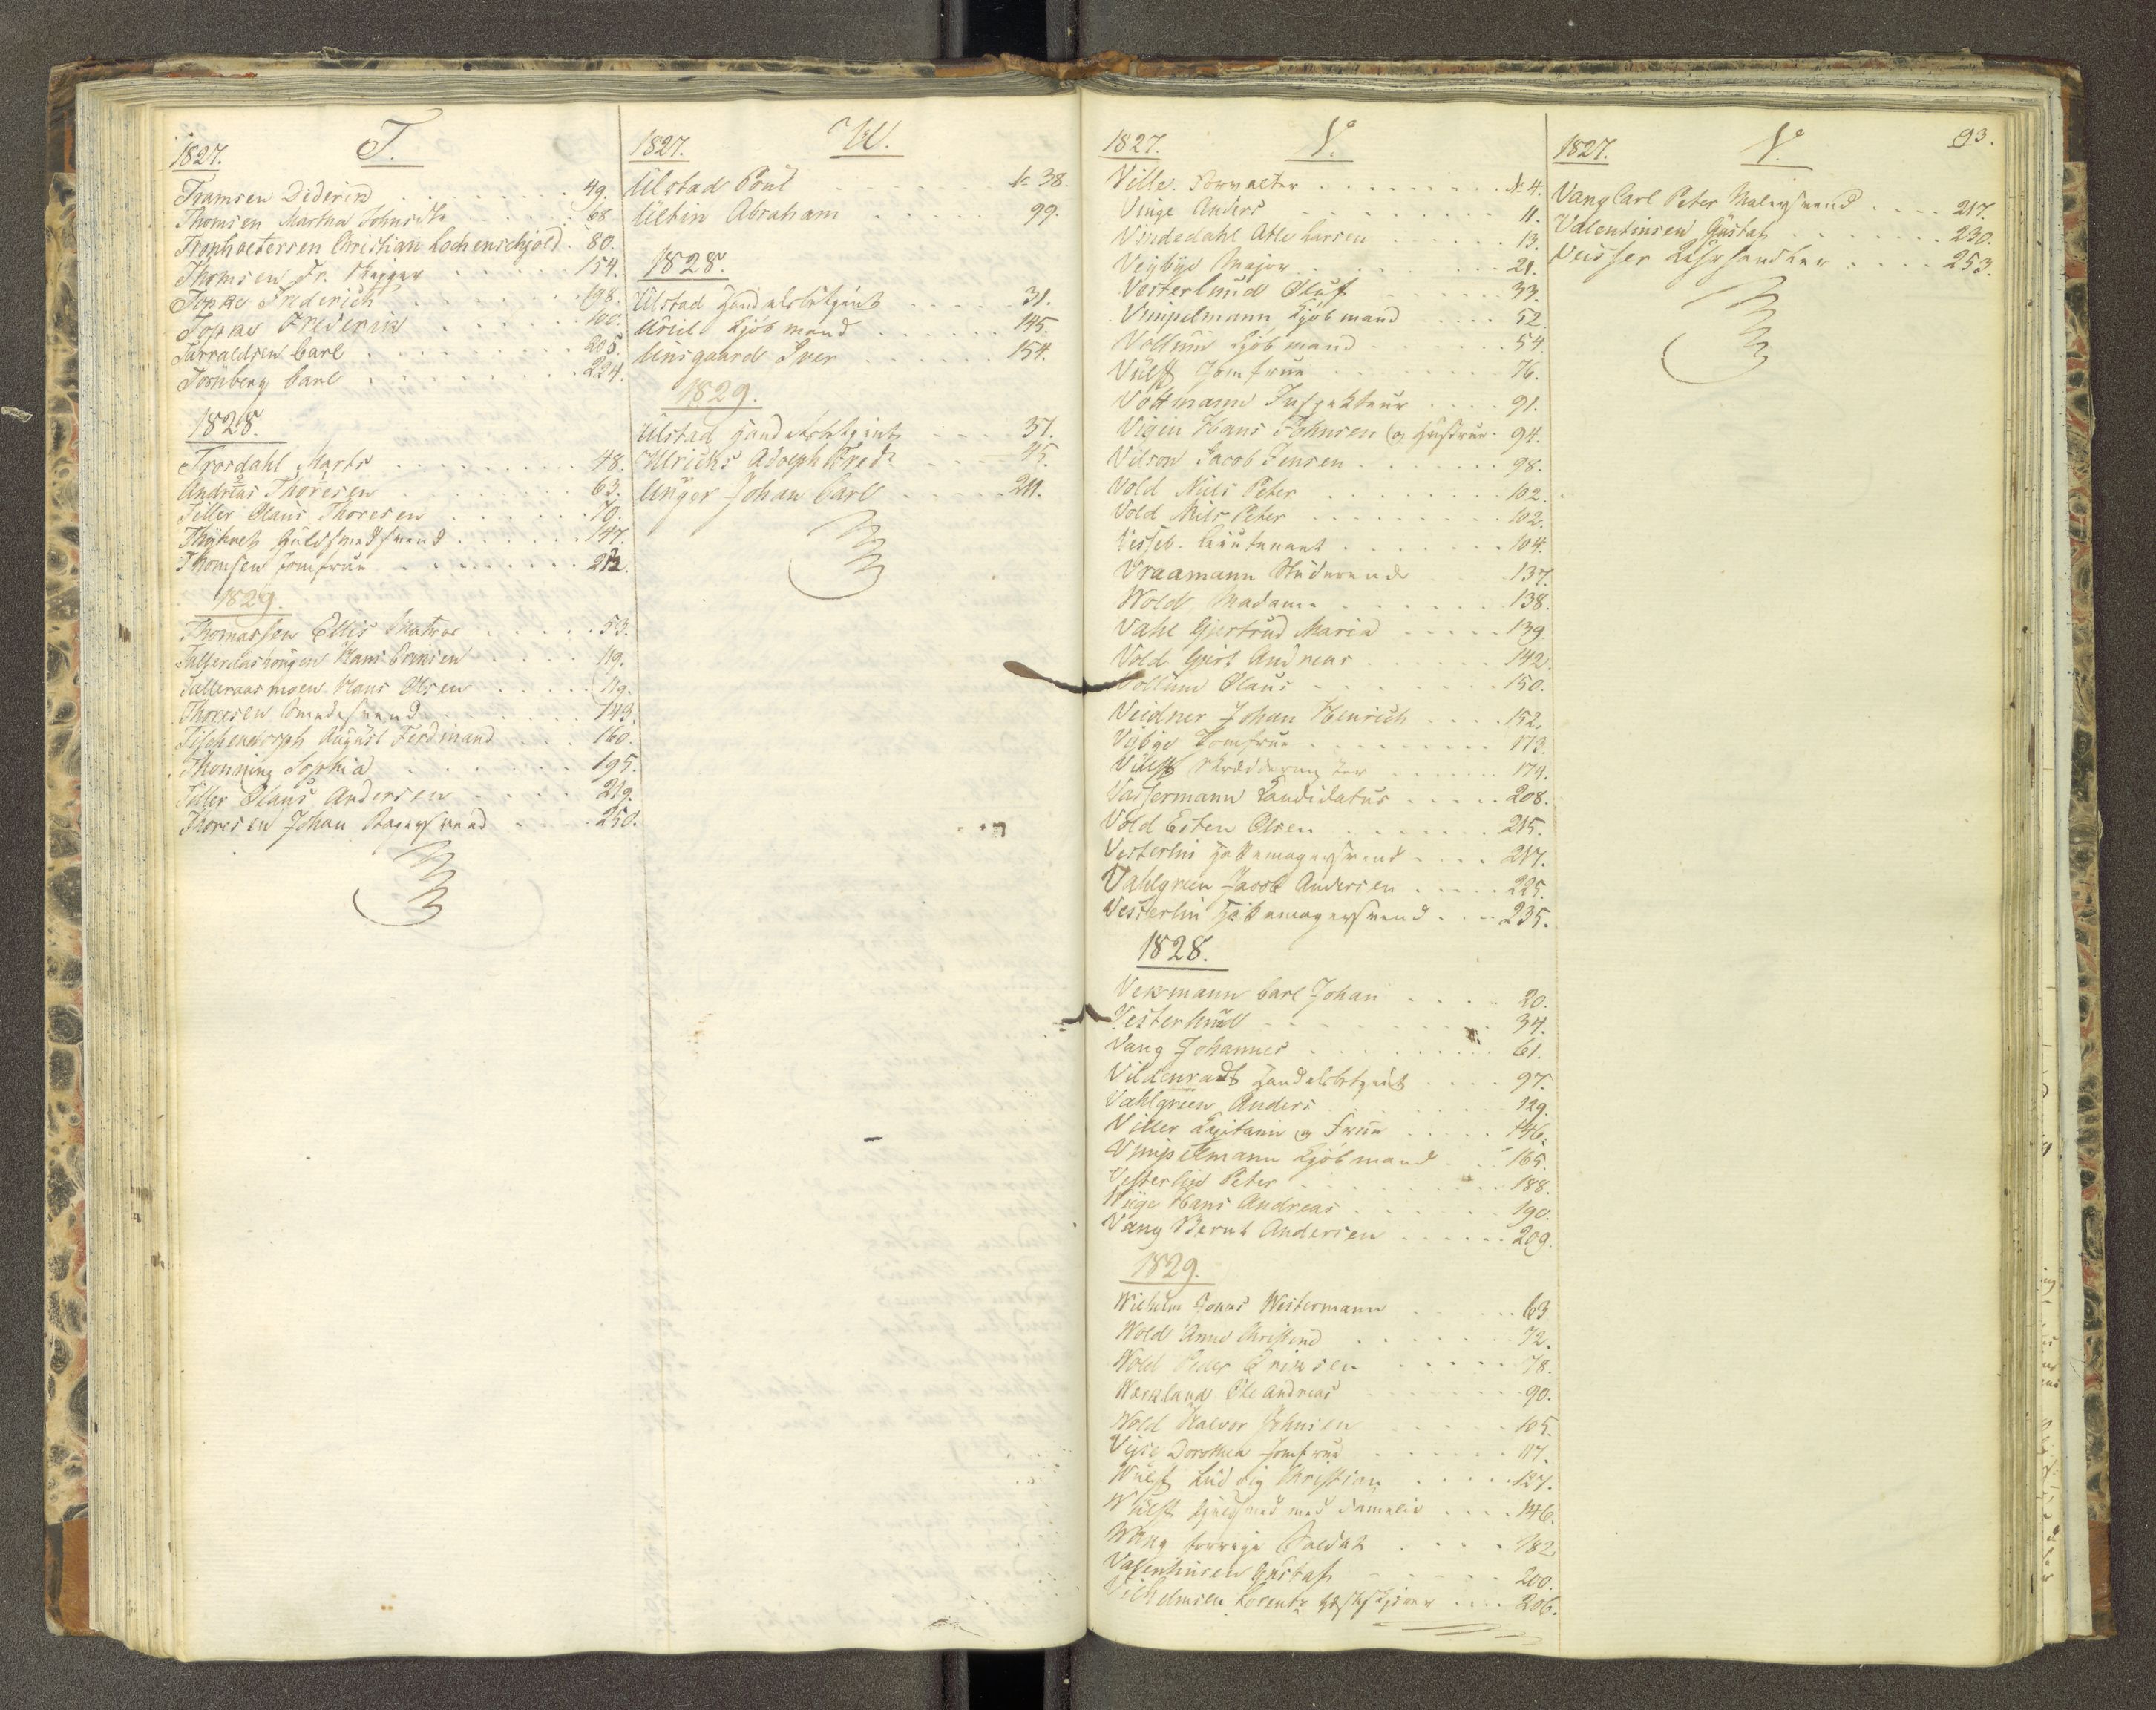 T.
1827.
Tramsen Diderik . . . 49.
Thomsen Martha Johns Dtr . . . 68.
Tronhoetersen Christian Lochenschjold . 80.
Thomsen Fr. Skipper . . . 154.
Topke Friderich . . . 198.
Topke Frederik . . . 100.
Tarraldsen Carl . . . 205.
Tornberg Carl . . . 224.
1828.
Trosdahl Marts . . . 48.
Andreas Thoresen . . . 63.
Tiller Olaus Thoresen . . . 70.
Guldsmedsvend . . . 147.
Thomsen Jomfrue . . . 212.
1829.
Thomassen Elles Matros . . . 53.
Hans . . . 119.
Talleraasmoen Hans Olsen . . . 119.
Thoresen Smedesvend . . . 143.
Tischendorph August Ferdinand . . . 160.
Thonning Sophia . . . 195.
Tiller Olaus Andersen . . . 219.
Thoresen Johan Bagersvend . . . 250.
U.
1827.
Ulstad Poul . . . № 38.
Uletin Abraham . . . 99.
1828.
Ulstad Handelsbetjent . . . 31.
Kjøbmand . . . 145.
Unsgaard Iver . . . 154.
1829.
Ulstad Handelsbetjent . . . 37.
Ulrichs Adolph Fred. . . . 45.
Unger Johan Carl . . . 211.
93.
V.
1827.
Ville Forvalter . . . № 4.
Vinge Anders . . . 11.
Vindedahl Atle Larsen . . . 13.
Veybye Major . . . 21.
Vesterlund Oluf . . . 33.
Vimpelmann Kjøbmand . . . 52.
Vollum Kjøbmand . . . 54.
Vulff Jomfrue . . . 76.
Voltmann Inspekteur . . . 91.
Vigen Hans Johnsen (og Hustrue . 94.
Vilson Jacob Jensen . . . 98.
Vold Niels Peter . . . 102.
Vold Nils Peter . . . 102.
Lieutenant . . . 104.
Vraamann Studerende . . . 137.
Wold Madame . . . 138.
Vahl Gjertrud Maria . . . 139.
Vold Andreas . . . 142.
Vollum Olaus . . . 150.
Veidner Johan Henrich . . . 152.
Vejbye Jomfrue . . . 173.
Vulff Skræddermester . . . 174.
Vassermann Candidatus . . . 208.
Vold Esten Olsen . . . 215.
Vesterlin Hattemagersvend . . . 217.
Vahlgreen Jacob Andersen . . . 225.
Vesterlin Hattemagersvend . . . 235.
1828.
Vekmann Carl Johan . . . 20.
Vesterlund . . . 34.
Vang Johannes . . . 61.
Vildenradt Handelsbetjent . . . 97.
Vahlgreen Anders . . . 129.
Viller Kapitain og Frue . . . 146.
Vimpelmann Kjøbmand . . . 165.
Vesterlin Peter . . . 188.
Hans Andreas . . . 190.
Vang Bernt Andersen . . . 209.
1829.
Wilhelm Jonas Westermann . . . 63
Wold Anne Christine . . . 72.
Wold Peder Eriksen . . . 78.
Werkland Ole Andreas . . . 90.
Wold Halvor Johnsen . . . 105.
Dorothea Jomfrue . . . 117.
Wulf Ludvig Christian . . . 127.
Wulff Guldsmed med Familie . . . 146.
Wang Soldat . . . 182
Valentinsen Gustaf . . . 200.
Vilhelmsen Lorentz . . . 206.
1827.
V.
Vang Carl Peter Malersvend . . . 217.
Valentinsen Gustaf . . . 230.
Veisser . . . 253.